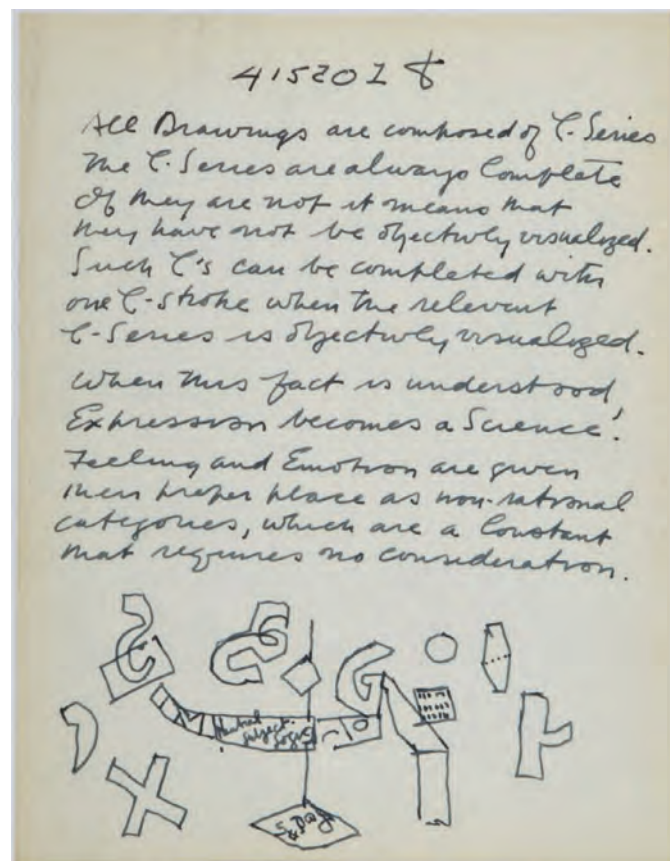 415201 8
All Drawings are composed of C-Series
The C-Series are always Complete
If they are not it means that
they have not be objectively visualized.
Such C's can be completed with
one C-Stroke when the relevent
C-Series is objectively visualized.
When this fact is understood,
Expression becomes a Science!
Feeling and Emotion are given
their proper place as non-rational
categories, which are a Constant
that requires no consideration.
Subject